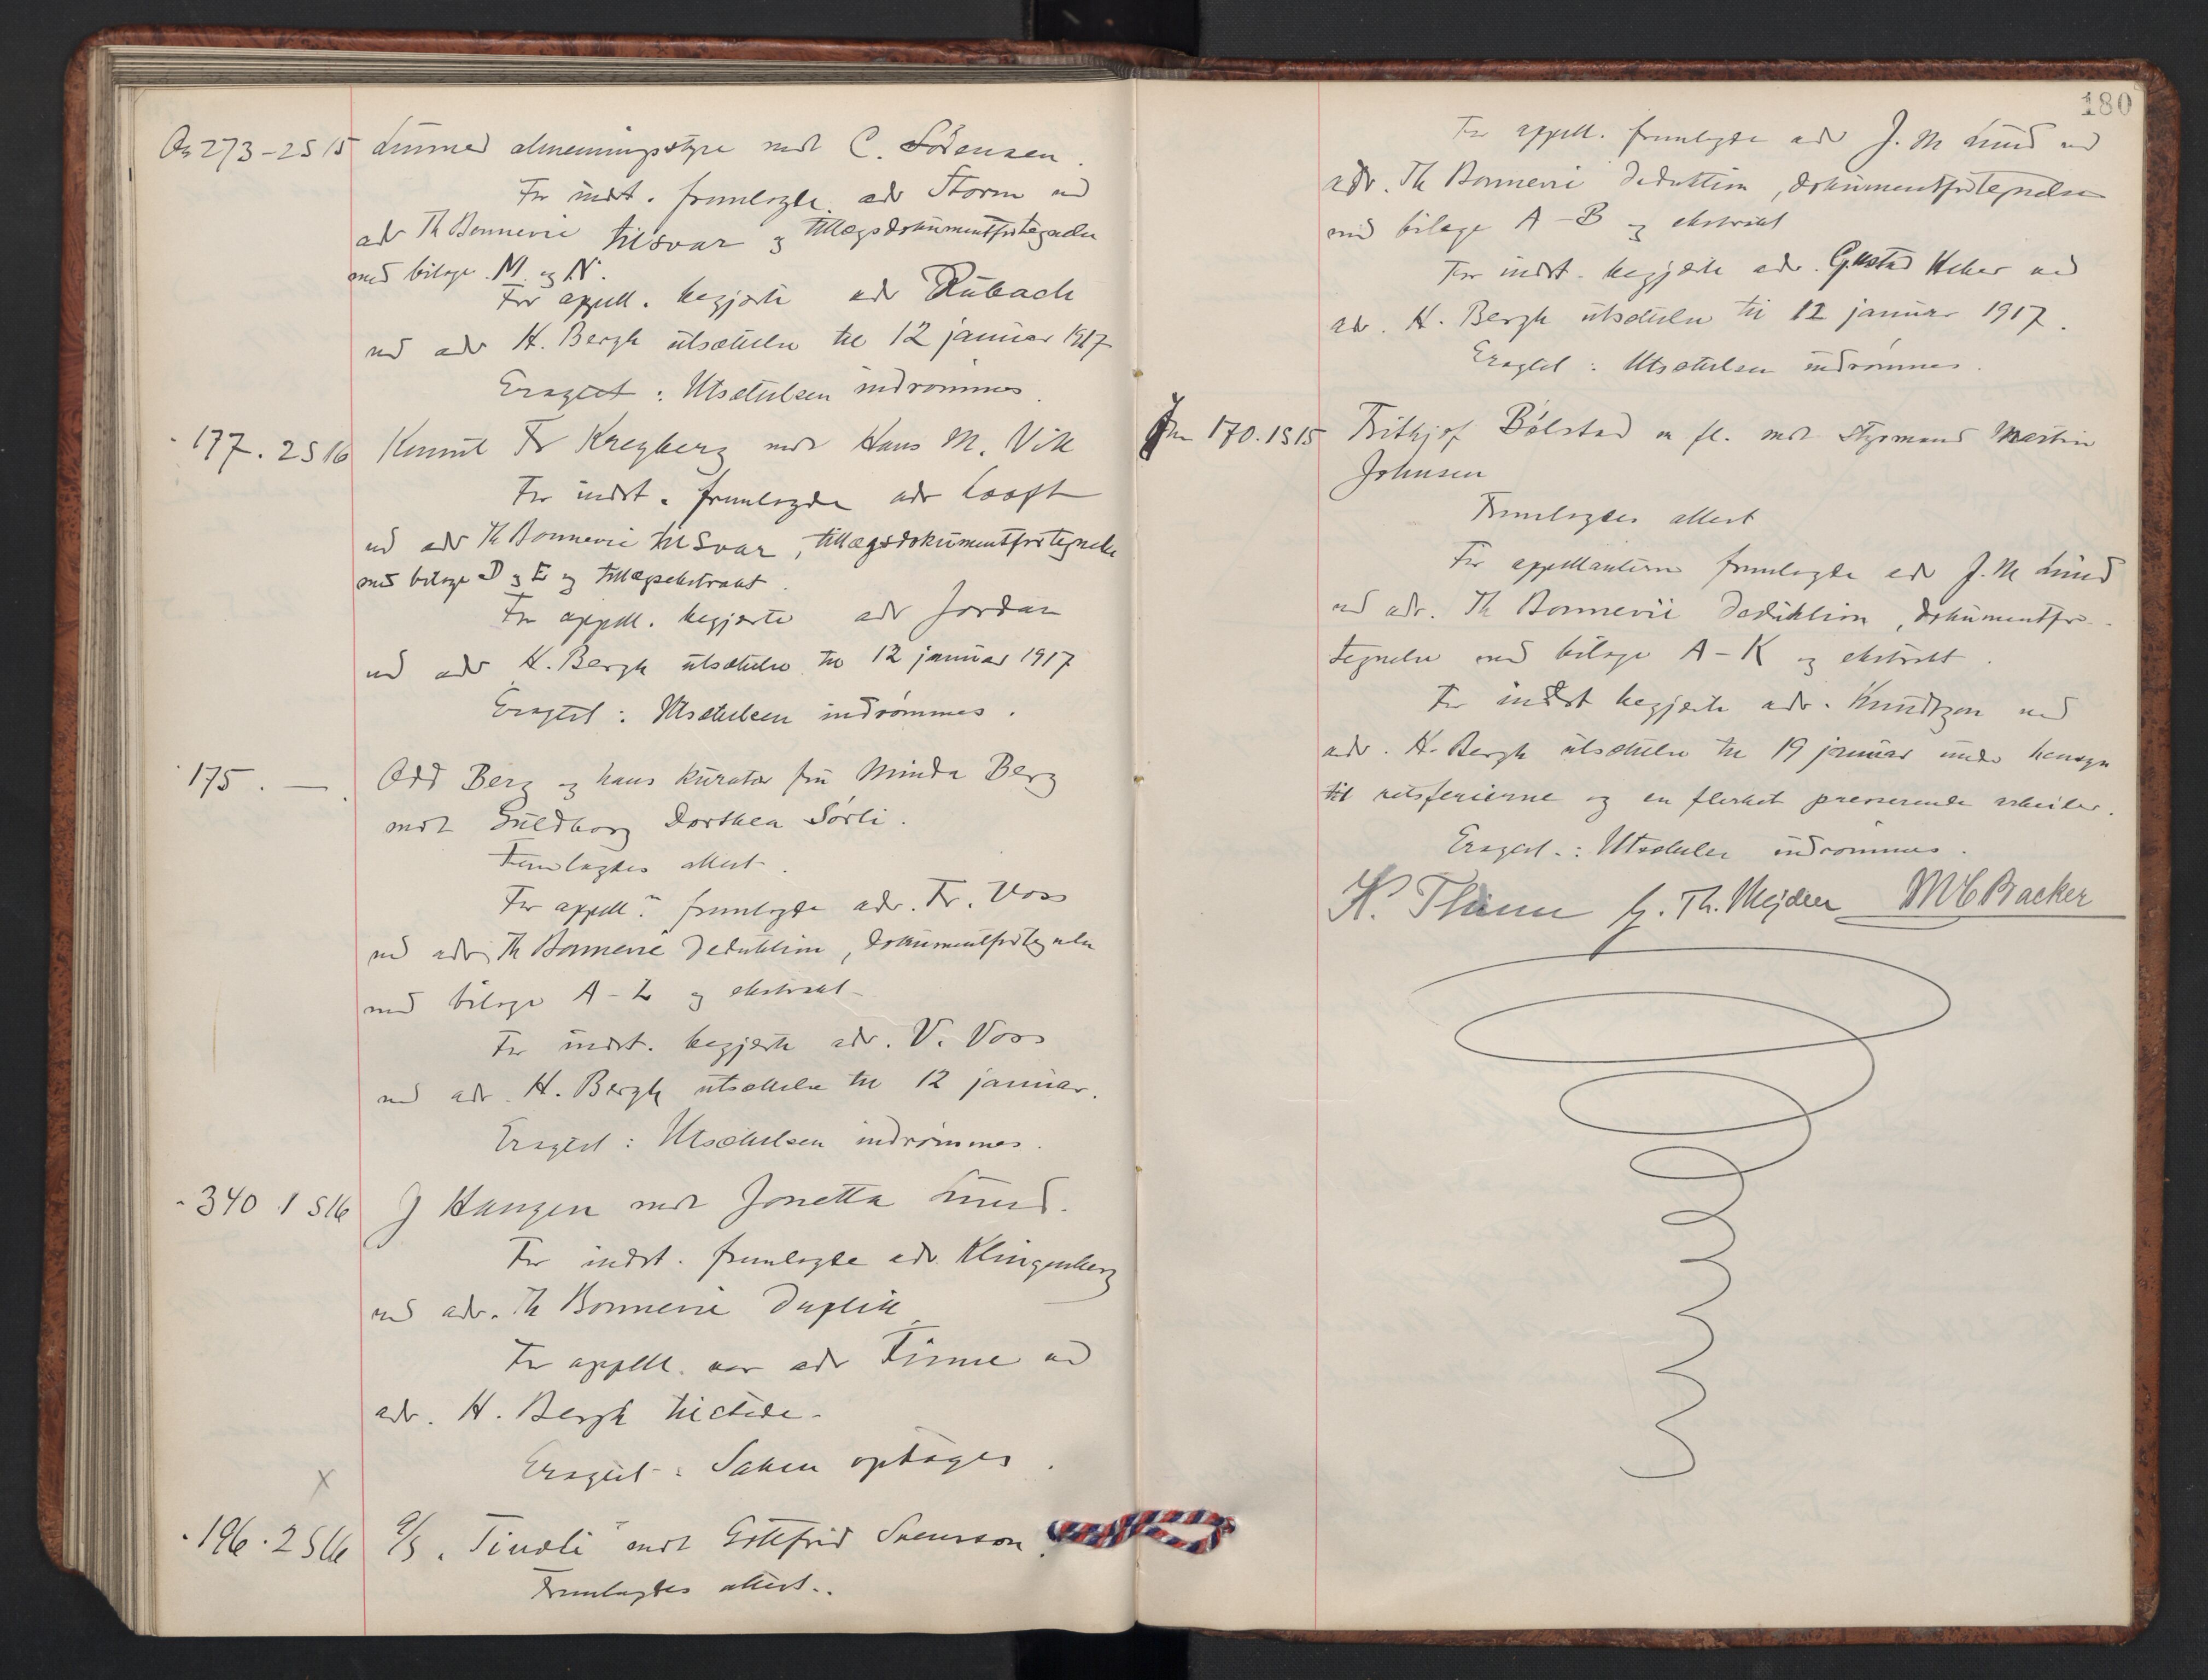 Os 273-2S15 Lunner almenningsstyre mot C. Sörensen.
For indst. fremlagde adv Storm ved
adv Th Bonnevie tilsvar og tillægsdokumentfortegnelse
med bilage M og N.
For appell. begjærte adv Rubach
ved adv H. Bergh utsættelse til 12 januar 1917
Eragtet: Utsættelsen indrømmes.
- 177. 2S16 Konsul Fr Kreyberg mot Hans M. Vik
For indst. fremlagde adv Looft
ved adv Th Bonnevie tilsvar, tillægsdokumentfortegnelse
med bilage D og E og tillægsekstrakt.
For appell. begjærte adv Jordan
ved adv H. Bergh utsættelse til 12 januar 1917
Eragtet: Utsættelsen indrømmes.
- 175. — Odd Berg og hans kurator fru Minda Berg
mot Guldborg Dorthea Sörli.
Fremlagdes attest.
For appell. fremlagde adv. Fr. Voss
ved adv Th Bonnevie deduktion, dokumentfortegnelse
med bilage A-L og ekstrakt
For indst. begjærte adv. V. Voss
ved adv. H. Bergh utsættelse til 12 januar.
Eragtet: Utsættelsen indrømmes.
- 340 1S16 J Haugen mot Jonetta Lund.
For indst. fremlagde adv. Klingenberg
ved adv. Th Bonnevie duplik
For appell. var adv Finne ved
adv. H. Bergh tilstede.
Eragtet: Saken optages.
X
- 196. 2S16 A/S "Tivoli" mot Gottfrid Svensson.
Fremlagdes attest.
180
For appell. fremlagde adv J. M Lund ved
adv. Th Bonnevie deduktion, dokumentfortegnelse
med bilage A-B og ekstrakt
For indst. begjærte adv. Gustad Heber ved
adv. H. Bergh utsættelse til 12 januar 1917.
Eragtet: Utsættelsen indrømmes.
170. 1S15 Frithjof Bölstad m fl. mot styrmand Martin
Johnsen
Fremlagdes attest
For appellanterne fremlagde adv J. M Lund
ved adv. Th Bonnevie deduktion, dokumentfor-
tegnelse med bilage A-K og ekstrakt.
For indst begjærte adv. Knudtzon ved
adv. H. Bergh utsættelse til 19 januar under hensyn
til retsferierne og en flerhet presserende arbeider.
Eragtet: Utsættelse indrømmes.
K. Thinn G. Th. Mejdell M C Backer